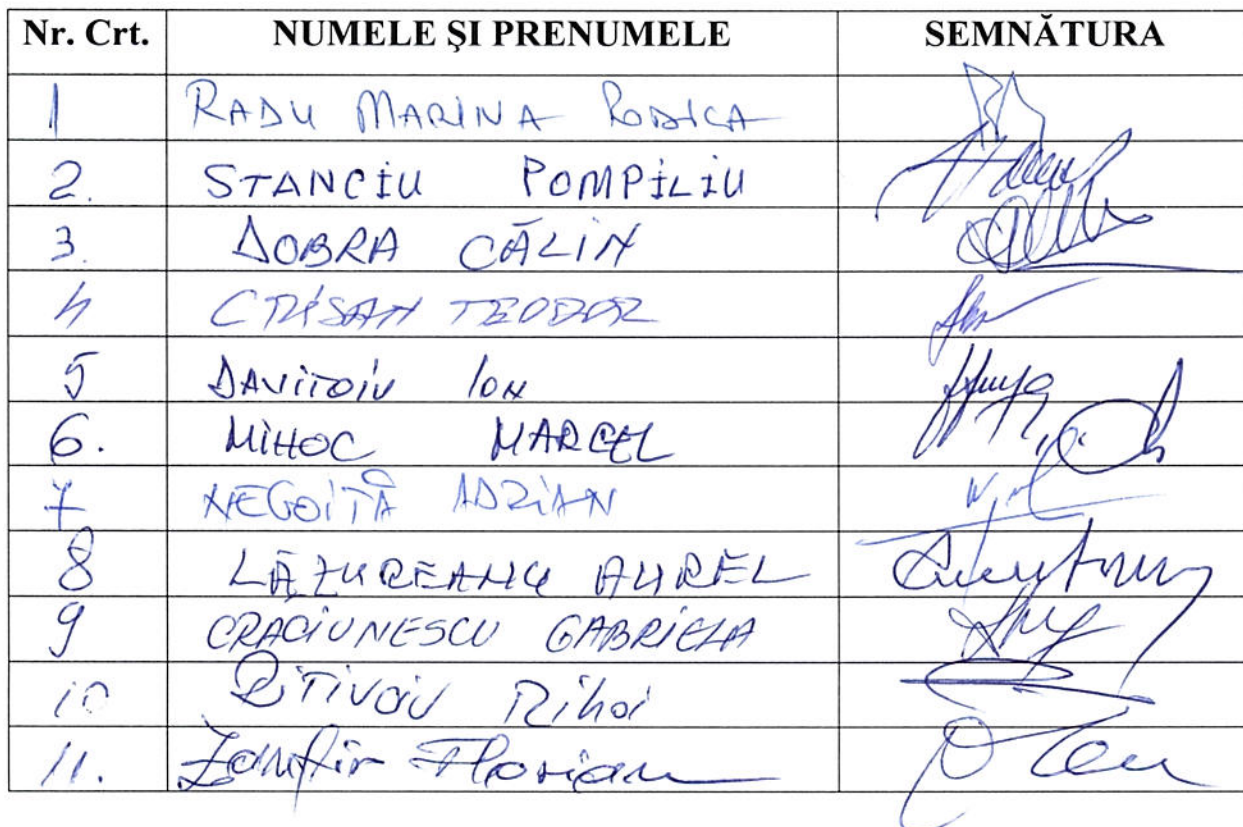 Nr. Crt. NUMELE ŞI PRENUMELE SEMNĂTURA
1 RADU MARINA RODICA
2. STANCIU POMPILIU
3. DOBRA CĂLIN
4 CRISAN TEODOR
5 DAVITOIU ION
6. MIHOC MARCEL
7 NEGOITĂ ADRIAN
8 LĂZUREANU AUREL
9 CRACIUNESCU GABRIELA
10 RITIVOIU
11. Zamfir Florian